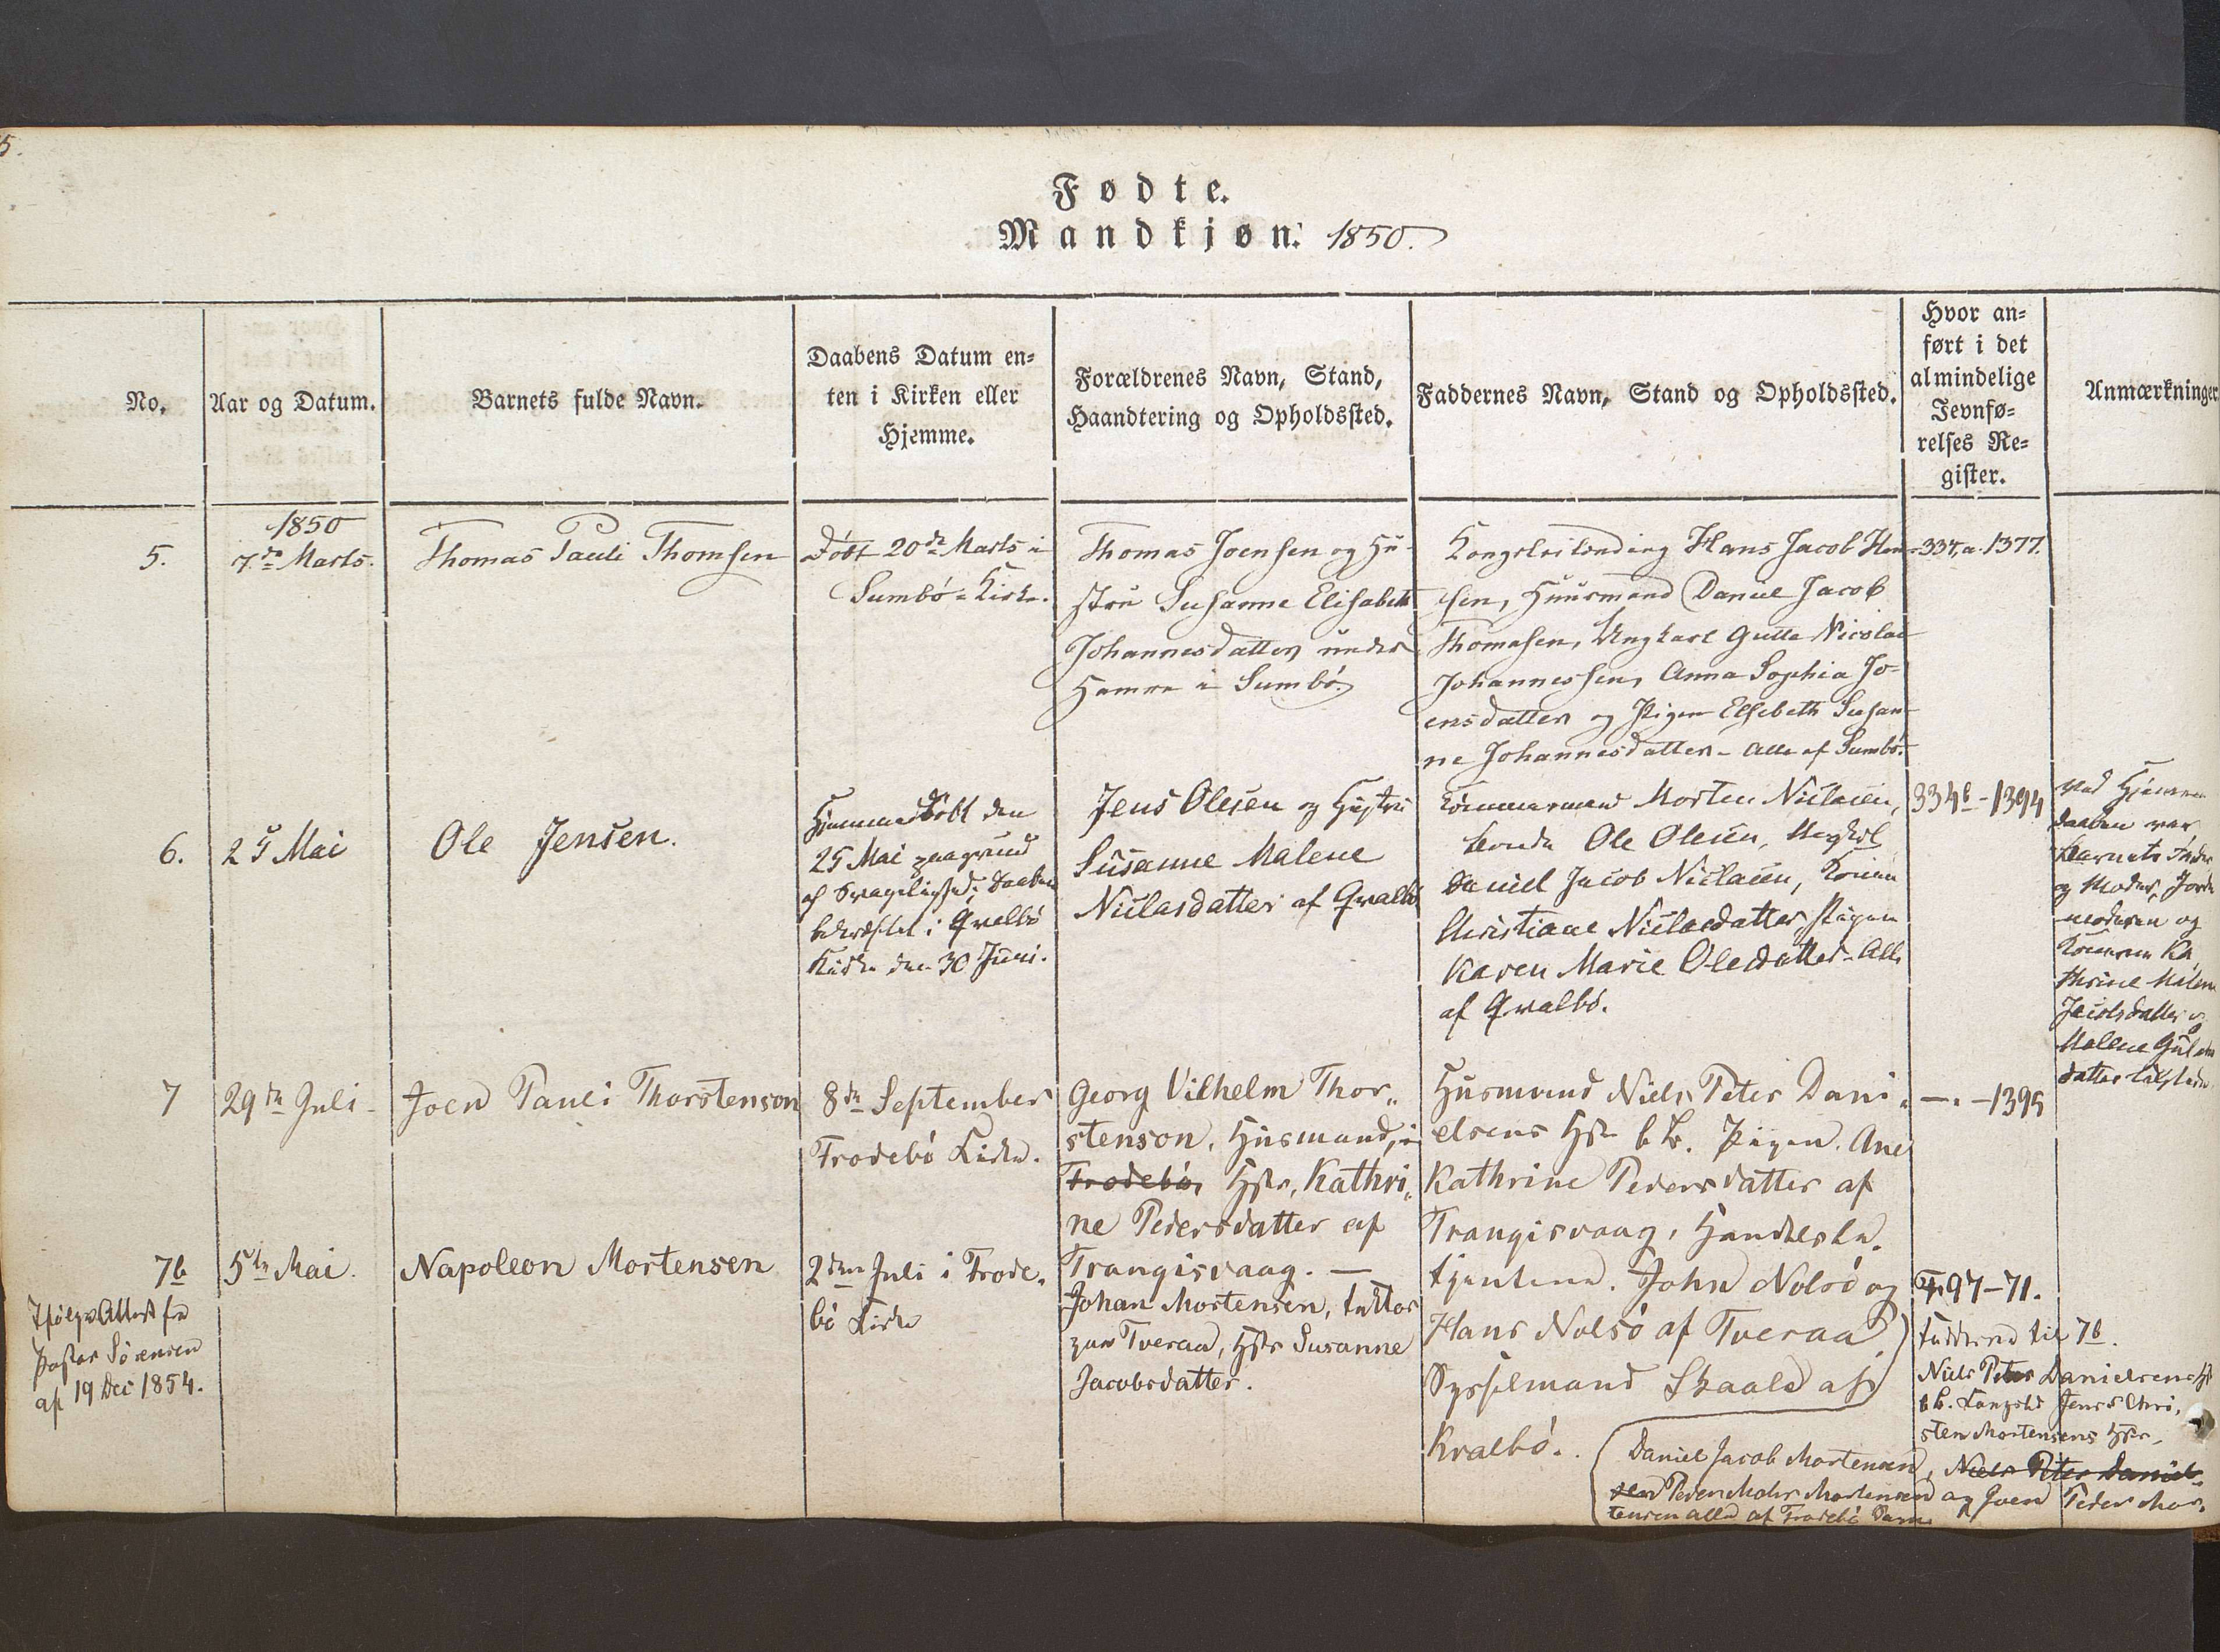 5.
Fødte.
Mandkjøn. 1850.
No.
Aar og Datum.
Barnets fulde Navn.
Daabens Datum en=
ten i Kirken eller
Hjemme.
Forældrenes Navn, Stand,
Haandtering og Opholdssted.
Faddernes Navn, Stand og Opholdssted.
Hvor an=
ført i det
almindelige
Jevnfø=
relses Re=
gister.
Anmærkninger
5.
1850
7de Marts.
Thomas Pauli Thomsen
Døbt 20de Marts i
Sumbø=Kirke.
Thomas Joensen og Hu-
stru Susanne Elisabeth
Johannesdatter under
Hamre i Sumbø.
Hans Jacob Han-
sen, Huusmand Daniel Jacob
Thomasen, Ungkarl Gutte Nicolai
Johannessen, Anna Sophia Jo-
ensdatter og Pigen Elsebeth Susan-
ne Johannesdatter - Alle af Sumbø.
334, a. 1377.
6.
25 Mai
Ole Jensen.
Hjemmedøbt den
25 Mai paagrund
af Svagelighed; Daaben
bekræftet i Qvalbø
Kirke den 30 Juni.
Jens Olesen og Hustru
Susanne Malene
Niclasdatter af Qvalbø
Morten Niclasen,
Bonde Ole Olesen, Ungkl
Daniel Jacob Niclasen, Konen
Christiane Niclasdatter, Pigen
Karen Marie Olesdatter - Alle
af Qvalbø.
334b - 1394
ved Hjemme
daaben var
Barnets Fader
og Moder, Jorde
moderen og
Konerne Ka
thrine Malene
Jacobsdatter og
Malene
datter tilstede.
7
29de Juli
Joen Pauli Thorstenson
8de September
Frodebø Kirke.
Georg Vilhelm Thor„
stenson, Husmand, i
Frodebø, Hstr. Kathri„
ne Pedersdatter af
Trangisvaag. —
Husmand Niels Peter Dani„
elsens Hstr b B. Pigen. Ane
Kathrine Pedersdatter af
Trangisvaag, Handels
tjenterne. John Nolsø og
Hans Nolsø af Tveraa
Sysselmand Skaale af
Kvalbø.
— . — 1395
7b
5te Mai.
Napoleon Mortensen
2den Juli i Frode„
bø Kirke
Johan Mortensen,
paa Tveraa, Hstr Susanne
Jacobsdatter.
97 - 71.
Ifølge Attest fra
Pastor Sørensen
af 19 Dec 1854.
Fadderne til 7b.
Niels Peter Danielsens Hst
b B. Kongsbd Jens Chri„
sten Mortensens Hstr,
Daniel Jacob Mortensen, Niels Peter Daniel„
sen Peder Mohr Mortensen og Joen Peder Mor„
tensen alle af Frodebø